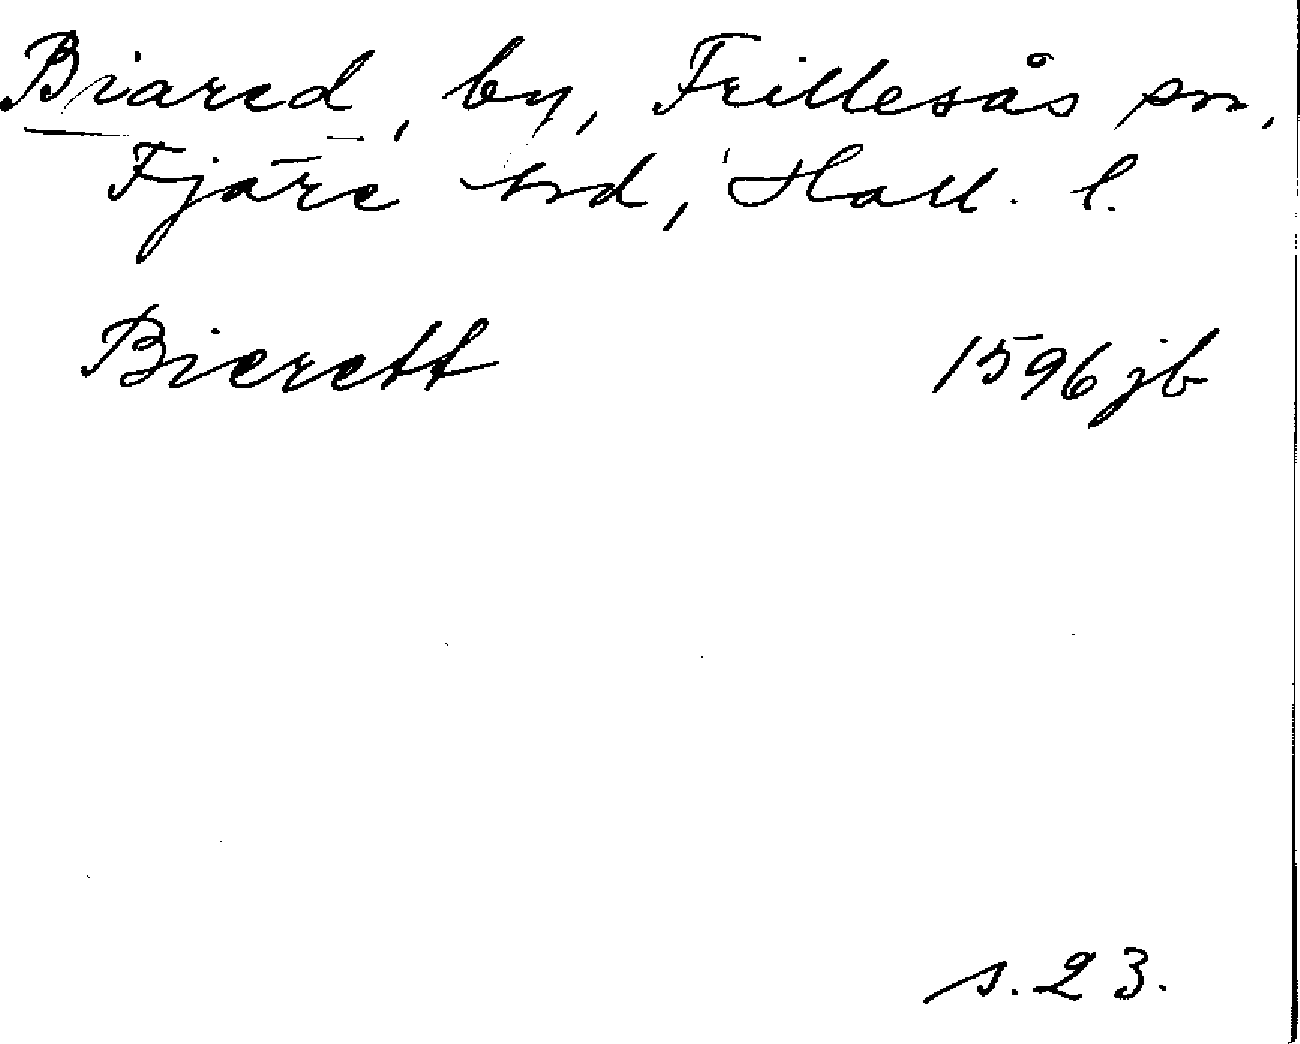 Biared, by, Frillesås sn,
Fjäre hd, Hall. l.
Bierett 1596 jb
s. 23.